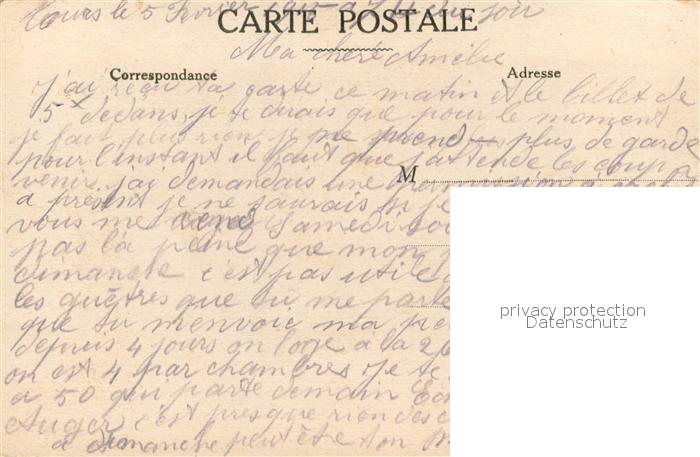 Tours le 5 Février 1915 du soir
CARTE POSTALE
Ma chère Amélie
Correspondance
Adresse
J'ai reçu ta carte ce matin et le billet de
5 x dedans, je te dirais que pour le moment
je fait plus rien je ne prend plus de garde
pour l'instant il faut que j'attende les coup
M
venir, j'ai demandais une permission
a présent je ne saurais si je
vous me samedi
pas la peine que mon
dimanche c'est pas utile
les guêtres que tu me parle
que tu m'envoie ma
depuis 4 jours on loge a la
on est 4 par chambres je te
a 50 qui parte demain
Auger c'est presque rien des
a dimanche peut être ton
privacy protection
Datenschutz